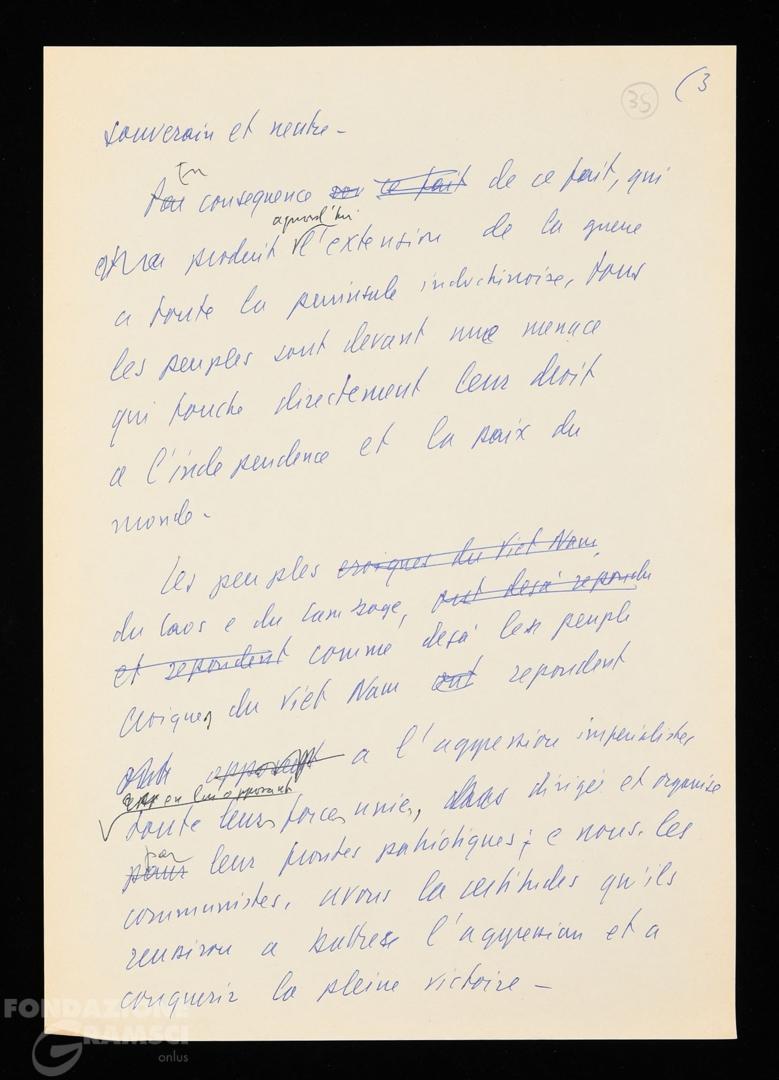 (3
35
souverain et neutre -
En
consequence ce fait de ce fait, qui
aujourd'hui
produit l'extension de la guerre
a toute la peninsule indochinoise, tous
les peuples sont devant une menace
qui touche directement leur droit
a l'independence et la paix du
monde -
Les peuples eroiques du Viet Nam
du Laos e du Camboge, ont dejà repondu
et repondent comme dejà les peuple
eroiques du Viet Nam ont repondent
a l'aggression imperialiste
en lui opposant
toute leurs forces unies, dirigés et organise
par
pour leur frontes patriotiques; e nous, les
communistes, avons la certitudes qu'ils
reusiron a battre l'aggression et a
conquerir la pleine victoire -
FONDAZIONE
GRAMSCI
onlus